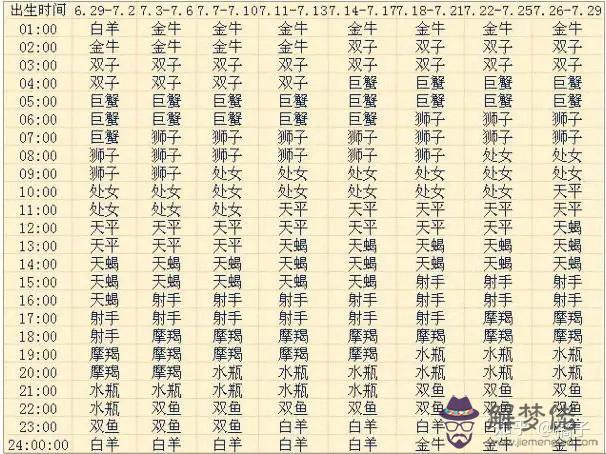 出生时间 6.29-7.2 7.3-7.6 7.7-7.10 7.11-7.13 7.14-7.17 7.18-7.21 7.22-7.25 7.26-7.29
01:00 白羊 金牛 金牛 金牛 金牛 金牛 金牛 金牛
02:00 金牛 金牛 金牛 金牛 双子 双子 双子 双子
03:00 双子 双子 双子 双子 双子 双子 双子 双子
04:00 双子 双子 双子 双子 巨蟹 巨蟹 巨蟹 巨蟹
05:00 巨蟹 巨蟹 巨蟹 巨蟹 巨蟹 巨蟹 巨蟹 巨蟹
06:00 巨蟹 巨蟹 巨蟹 巨蟹 巨蟹 狮子 狮子 狮子
07:00 巨蟹 狮子 狮子 狮子 狮子 狮子 狮子 狮子
08:00 狮子 狮子 狮子 狮子 狮子 狮子 处女 处女
09:00 狮子 狮子 处女 处女 处女 处女 处女 处女
10:00 处女 处女 处女 处女 处女 处女 处女 天平
11:00 处女 处女 处女 天平 天平 天平 天平 天平
12:00 天平 天平 天平 天平 天平 天平 天平 天蝎
13:00 天平 天平 天平 天蝎 天蝎 天蝎 天蝎 天蝎
14:00 天蝎 天蝎 天蝎 天蝎 天蝎 天蝎 天蝎 天蝎
15:00 天蝎 天蝎 天蝎 天蝎 天蝎 射手 射手 射手
16:00 天蝎 射手 射手 射手 射手 射手 射手 射手
17:00 射手 射手 射手 射手 射手 射手 摩羯 摩羯
18:00 射手 摩羯 摩羯 摩羯 摩羯 摩羯 摩羯 摩羯
19:00 摩羯 摩羯 摩羯 摩羯 摩羯 水瓶 水瓶 水瓶
20:00 摩羯 摩羯 水瓶 水瓶 水瓶 水瓶 水瓶 水瓶
21:00 水瓶 水瓶 水瓶 水瓶 水瓶 双鱼 双鱼 双鱼
22:00 水瓶 双鱼 双鱼 双鱼 双鱼 双鱼 双鱼 双鱼
23:00 双鱼 双鱼 双鱼 白羊 白羊 白羊
24:00:00 白羊 白羊 白羊 白羊 白羊 金牛 金牛 金牛
解梦佬
www.jiemenglao.com